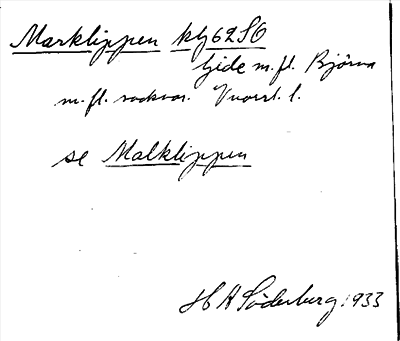 Marklippen klg 62 S6
Gide m.fl. Björna
m.fl. socknar. Vnorrl. l.
se Malklippen
H A Söderberg 1933